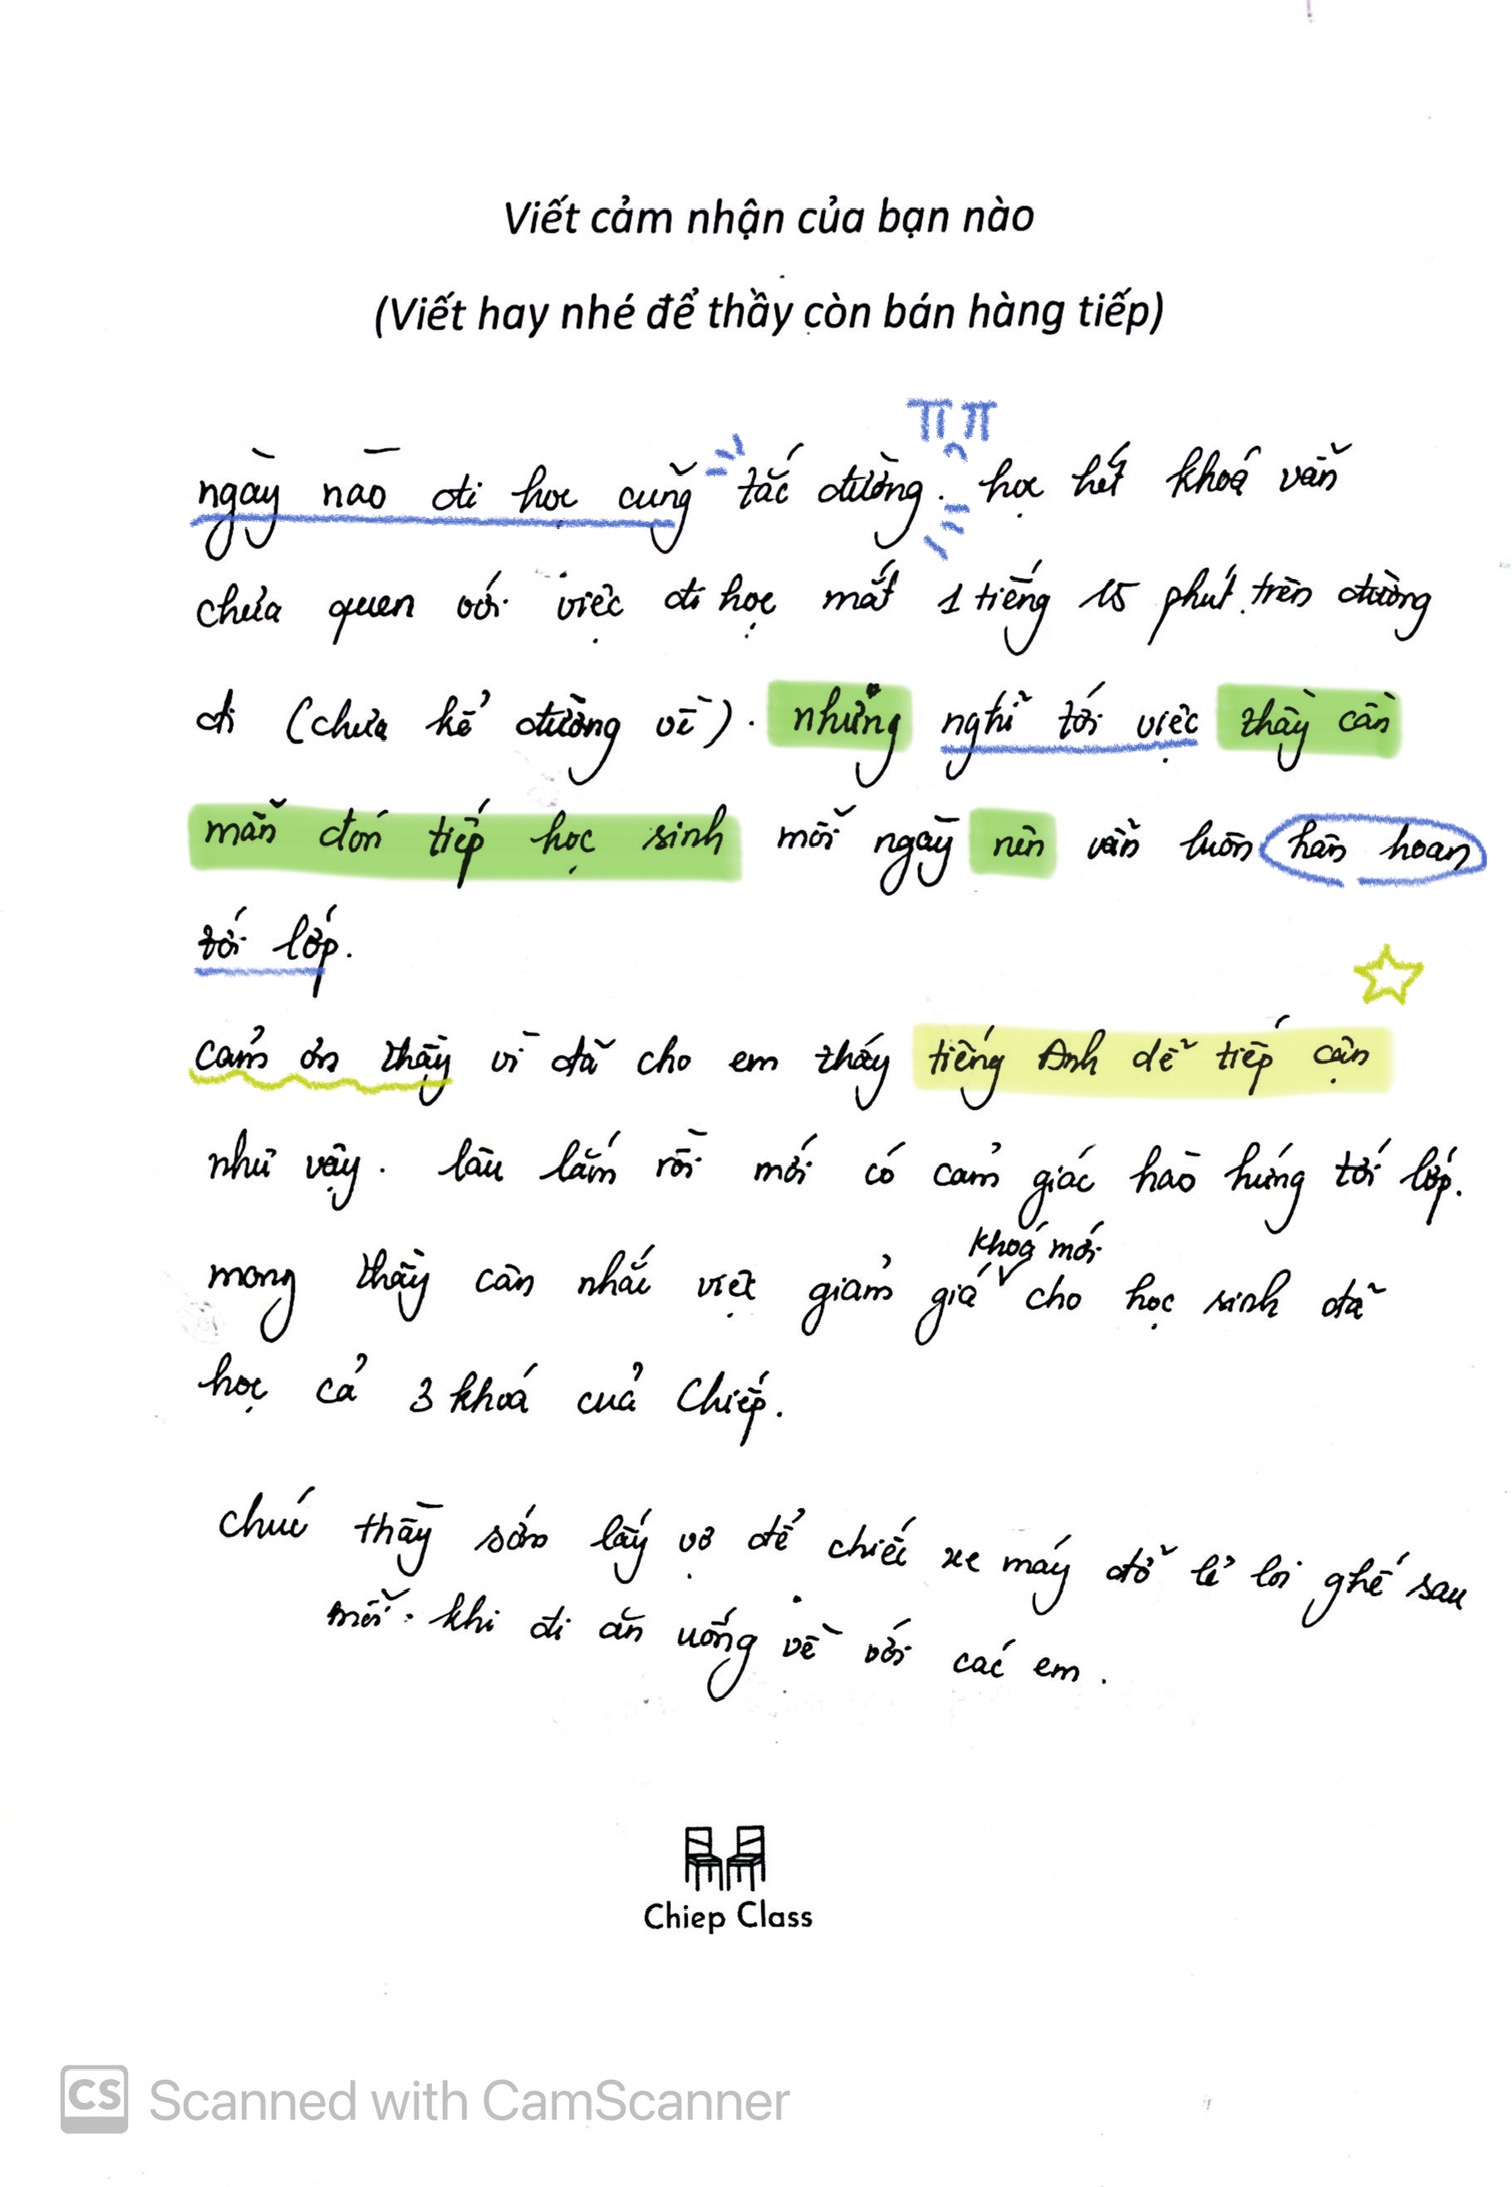 Viết cảm nhận của bạn nào
(Viết hay nhé để thầy còn bán hàng tiếp)
ngày nào đi học cũng tắc đường. học hết khoá vẫn
chưa quen với việc đi học mất 1 tiếng 15 phút trên đường
đi (chưa kể đường về). nhưng nghĩ tới việc thầy cần
mẫn đón tiếp học sinh mỗi ngày nên vẫn luôn hân hoan
tới lớp.
cảm ơn thầy vì đã cho em thấy tiếng Anh dễ tiếp cận
như vậy. lâu lắm rồi mới có cảm giác hào hứng tới lớp.
khoá mới
mong thầy cân nhắc việc giảm giá cho học sinh đã
học cả 3 khoá của Chiếp.
chúc thầy sớm lấy vợ để chiếc xe máy đỡ lẻ loi ghế sau
mỗi khi đi ăn uống về với các em.
Chiep Class
CS Scanned with CamScanner